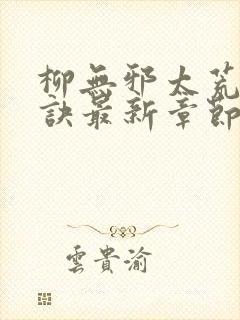 柳無邪太荒
訣最新章節
雲貴渝